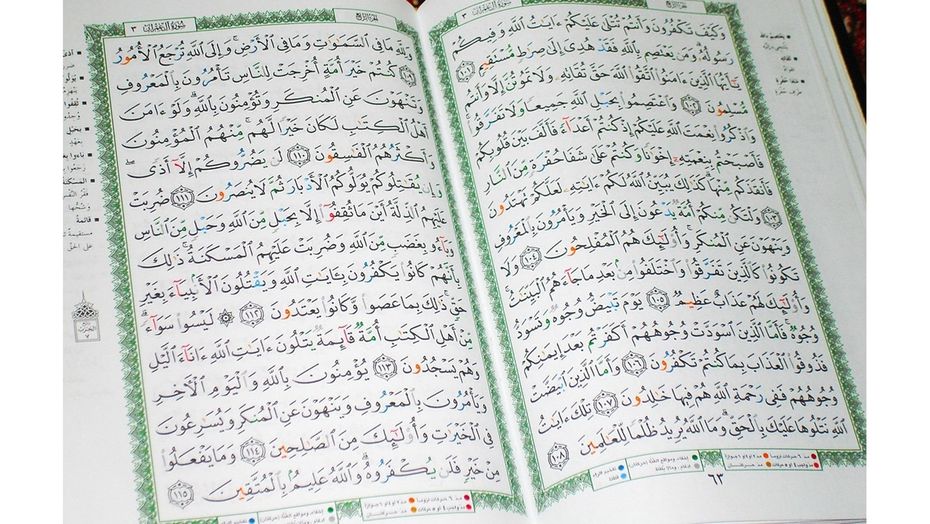 الجزء الرابع
سورة آل عمران ٣
وَكَيْفَ تَكْفُرُونَ وَأَنتُمْ تُتْلَىٰ عَلَيْكُمْ ءَايَٰتُ ٱللَّهِ وَفِيكُمْ
رَسُولُهُۥ وَمَن يَعْتَصِم بِٱللَّهِ فَقَدْ هُدِىَ إِلَىٰ صِرَٰطٍ مُّسْتَقِيمٍ ١٠١
يَٰٓأَيُّهَا ٱلَّذِينَ ءَامَنُوا۟ ٱتَّقُوا۟ ٱللَّهَ حَقَّ تُقَاتِهِۦ وَلَا تَمُوتُنَّ إِلَّا وَأَنتُم
مُّسْلِمُونَ ١٠٢ وَٱعْتَصِمُوا۟ بِحَبْلِ ٱللَّهِ جَمِيعًا وَلَا تَفَرَّقُوا۟
وَٱذْكُرُوا۟ نِعْمَتَ ٱللَّهِ عَلَيْكُمْ إِذْ كُنتُمْ أَعْدَآءً فَأَلَّفَ بَيْنَ قُلُوبِكُمْ
فَأَصْبَحْتُم بِنِعْمَتِهِۦٓ إِخْوَٰنًا وَكُنتُمْ عَلَىٰ شَفَا حُفْرَةٍ مِّنَ ٱلنَّارِ
فَأَنقَذَكُم مِّنْهَا كَذَٰلِكَ يُبَيِّنُ ٱللَّهُ لَكُمْ ءَايَٰتِهِۦ لَعَلَّكُمْ تَهْتَدُونَ
١٠٣ وَلْتَكُن مِّنكُمْ أُمَّةٌ يَدْعُونَ إِلَى ٱلْخَيْرِ وَيَأْمُرُونَ بِٱلْمَعْرُوفِ
وَيَنْهَوْنَ عَنِ ٱلْمُنكَرِ وَأُو۟لَٰٓئِكَ هُمُ ٱلْمُفْلِحُونَ ١٠٤ وَلَا
تَكُونُوا۟ كَٱلَّذِينَ تَفَرَّقُوا۟ وَٱخْتَلَفُوا۟ مِنۢ بَعْدِ مَا جَآءَهُمُ ٱلْبَيِّنَٰتُ
وَأُو۟لَٰٓئِكَ لَهُمْ عَذَابٌ عَظِيمٌ ١٠٥ يَوْمَ تَبْيَضُّ وُجُوهٌ وَتَسْوَدُّ
وُجُوهٌ فَأَمَّا ٱلَّذِينَ ٱسْوَدَّتْ وُجُوهُهُمْ أَكَفَرْتُم بَعْدَ إِيمَٰنِكُمْ
فَذُوقُوا۟ ٱلْعَذَابَ بِمَا كُنتُمْ تَكْفُرُونَ ١٠٦ وَأَمَّا ٱلَّذِينَ ٱبْيَضَّتْ
وُجُوهُهُمْ فَفِى رَحْمَةِ ٱللَّهِ هُمْ فِيهَا خَٰلِدُونَ ١٠٧ تِلْكَ ءَايَٰتُ
ٱللَّهِ نَتْلُوهَا عَلَيْكَ بِٱلْحَقِّ وَمَا ٱللَّهُ يُرِيدُ ظُلْمًا لِّلْعَٰلَمِينَ ١٠٨
٦٣
الجزء الرابع
سورة آل عمران ٣
وَلِلَّهِ مَا فِى ٱلسَّمَٰوَٰتِ وَمَا فِى ٱلْأَرْضِ وَإِلَى ٱللَّهِ تُرْجَعُ ٱلْأُمُورُ
١٠٩ كُنتُمْ خَيْرَ أُمَّةٍ أُخْرِجَتْ لِلنَّاسِ تَأْمُرُونَ بِٱلْمَعْرُوفِ
وَتَنْهَوْنَ عَنِ ٱلْمُنكَرِ وَتُؤْمِنُونَ بِٱللَّهِ وَلَوْ ءَامَنَ
أَهْلُ ٱلْكِتَٰبِ لَكَانَ خَيْرًا لَّهُم مِّنْهُمُ ٱلْمُؤْمِنُونَ
وَأَكْثَرُهُمُ ٱلْفَٰسِقُونَ ١١٠ لَن يَضُرُّوكُمْ إِلَّآ أَذًى
وَإِن يُقَٰتِلُوكُمْ يُوَلُّوكُمُ ٱلْأَدْبَارَ ثُمَّ لَا يُنصَرُونَ ١١١ ضُرِبَتْ
عَلَيْهِمُ ٱلذِّلَّةُ أَيْنَ مَا ثُقِفُوٓا۟ إِلَّا بِحَبْلٍ مِّنَ ٱللَّهِ وَحَبْلٍ مِّنَ ٱلنَّاسِ
وَبَآءُو بِغَضَبٍ مِّنَ ٱللَّهِ وَضُرِبَتْ عَلَيْهِمُ ٱلْمَسْكَنَةُ ذَٰلِكَ
بِأَنَّهُمْ كَانُوا۟ يَكْفُرُونَ بِـَٔايَٰتِ ٱللَّهِ وَيَقْتُلُونَ ٱلْأَنۢبِيَآءَ بِغَيْرِ
حَقٍّ ذَٰلِكَ بِمَا عَصَوا۟ وَّكَانُوا۟ يَعْتَدُونَ ١١٢ لَيْسُوا۟ سَوَآءً
مِّنْ أَهْلِ ٱلْكِتَٰبِ أُمَّةٌ قَآئِمَةٌ يَتْلُونَ ءَايَٰتِ ٱللَّهِ ءَانَآءَ ٱلَّيْلِ
وَهُمْ يَسْجُدُونَ ١١٣ يُؤْمِنُونَ بِٱللَّهِ وَٱلْيَوْمِ ٱلْءَاخِرِ
وَيَأْمُرُونَ بِٱلْمَعْرُوفِ وَيَنْهَوْنَ عَنِ ٱلْمُنكَرِ وَيُسَٰرِعُونَ
فِى ٱلْخَيْرَٰتِ وَأُو۟لَٰٓئِكَ مِنَ ٱلصَّٰلِحِينَ ١١٤ وَمَا يَفْعَلُوا۟
مِنْ خَيْرٍ فَلَن يُكْفَرُوهُ وَٱللَّهُ عَلِيمٌۢ بِٱلْمُتَّقِينَ ١١٥